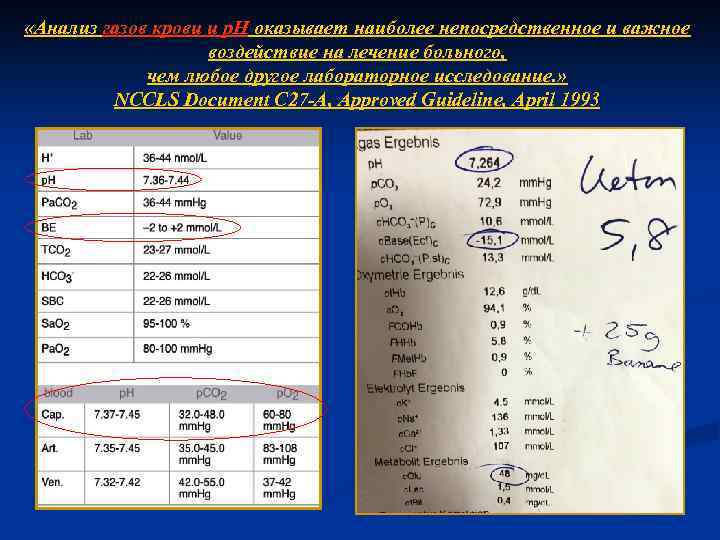 «Анализ газов крови и pH оказывает наиболее непосредственное и важное
воздействие на лечение больного,
чем любое другое лабораторное исследование.»
NCCLS Document C27-A, Approved Guideline, April 1993
Lab Value
H⁺ 36-44 nmol/L
pH 7.36-7.44
PaCO₂ 36-44 mmHg
BE –2 to +2 mmol/L
TCO₂ 23-27 mmol/L
HCO₃⁻ 22-26 mmol/L
SBC 22-26 mmol/L
Sa.O₂ 95-100 %
Pa.O₂ 80-100 mmHg
blood pH pCO₂ pO₂
Cap. 7.37-7.45 32.0-48.0 mmHg 60-80 mmHg
Art. 7.35-7.45 35.0-45.0 mmHg 83-108 mmHg
Ven. 7.32-7.42 42.0-55.0 mmHg 37-42 mmHg
gas Ergebnis
pH 7,264
pCO₂ 24,2 mmHg
pO₂ 72,9 mmHg
cHCO₃⁻(P)c 10,6 mmol/L
cBase(Ecf)c -15,1 mmol/L
cHCO₃⁻(P,st)c 13,3 mmol/L
Oxymetrie Ergebnis
ctHb 12,6 g/dL
sO₂ 94,1 %
FCOHb 0,9 %
FHHb 5,8 %
FMetHb 0,9 %
FHbF 0 %
Elektrolyt Ergebnis
cK⁺ 4,5 mmol/L
cNa⁺ 136 mmol/L
cCa²⁺ 1,33 mmol/L
cCl⁻ 107 mmol/L
Metabolit Ergebnis
cGlu 48 mg/dL
cLac 1,5 mmol/L
ctBil 0,4 mg/dL
Keton
5,8
+ 25g
Banane